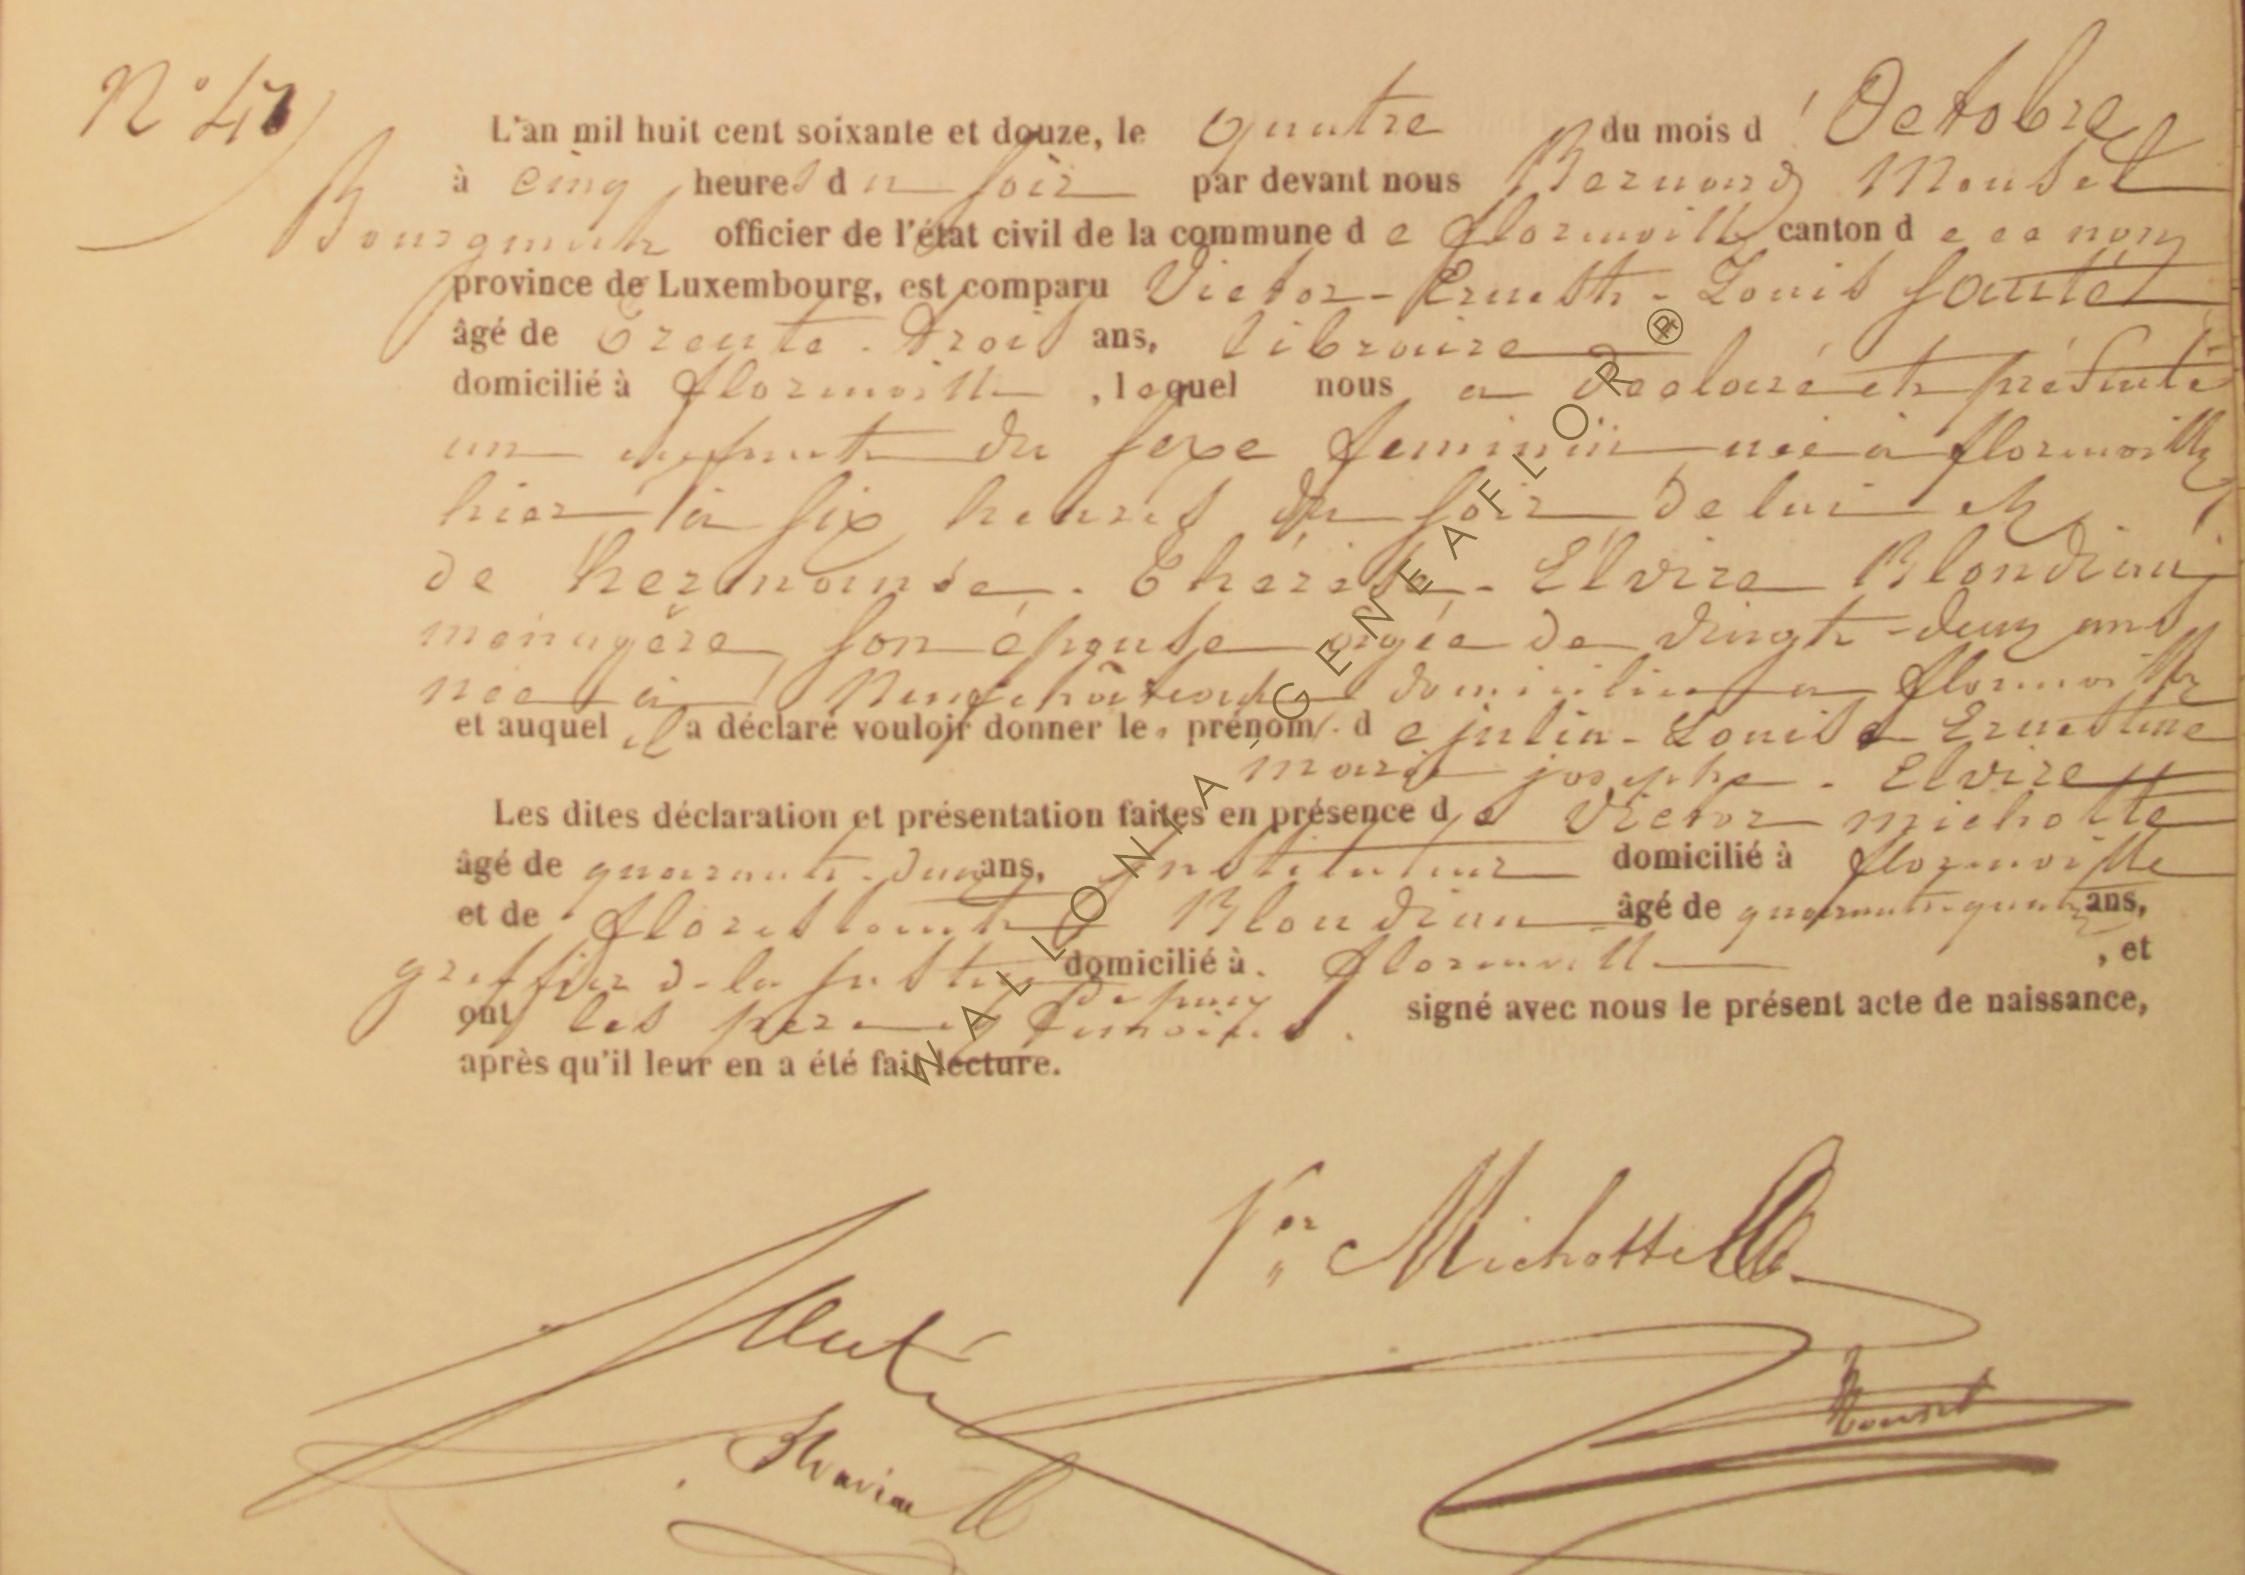 N° 47
L'an mil huit cent soixante et douze, le quatre du mois d'Octobre
à cinq heures du soir par devant nous Bernard Mousel
Bourgmestre officier de l'état civil de la commune de florenville canton de ce nom
province de Luxembourg, est comparu Victor-Ernest-Louis Sauté
âgé de Trente-trois ans, libraire
domicilié à florenville, lequel nous a declaré et présenté
un enfant du sexe feminin née à florenville
hier à six heures du soir de lui et
de hermance-Thérèse-Elvire Blondiau
ménagère son épouse agée de vingt-deux ans
née à Neufchâteau domiciliée à florenville
et auquel il a déclaré vouloir donner les prénoms de julia-Louise Ernestine
marie josephe-Elvire
Les dites déclaration et présentation faites en présence de Victor michotte
âgé de quarante-deux ans, Instituteur domicilié à florenville
et de florest Blondiau âgé de quarante-quatre ans,
greffier de la justice de paix domicilié à florenville, et
ont les père et témoins signé avec nous le présent acte de naissance,
après qu'il leur en a été fait lecture.
Vor Michotte
Sauté
Mousel
WALLONIA GENEAFLOR ®